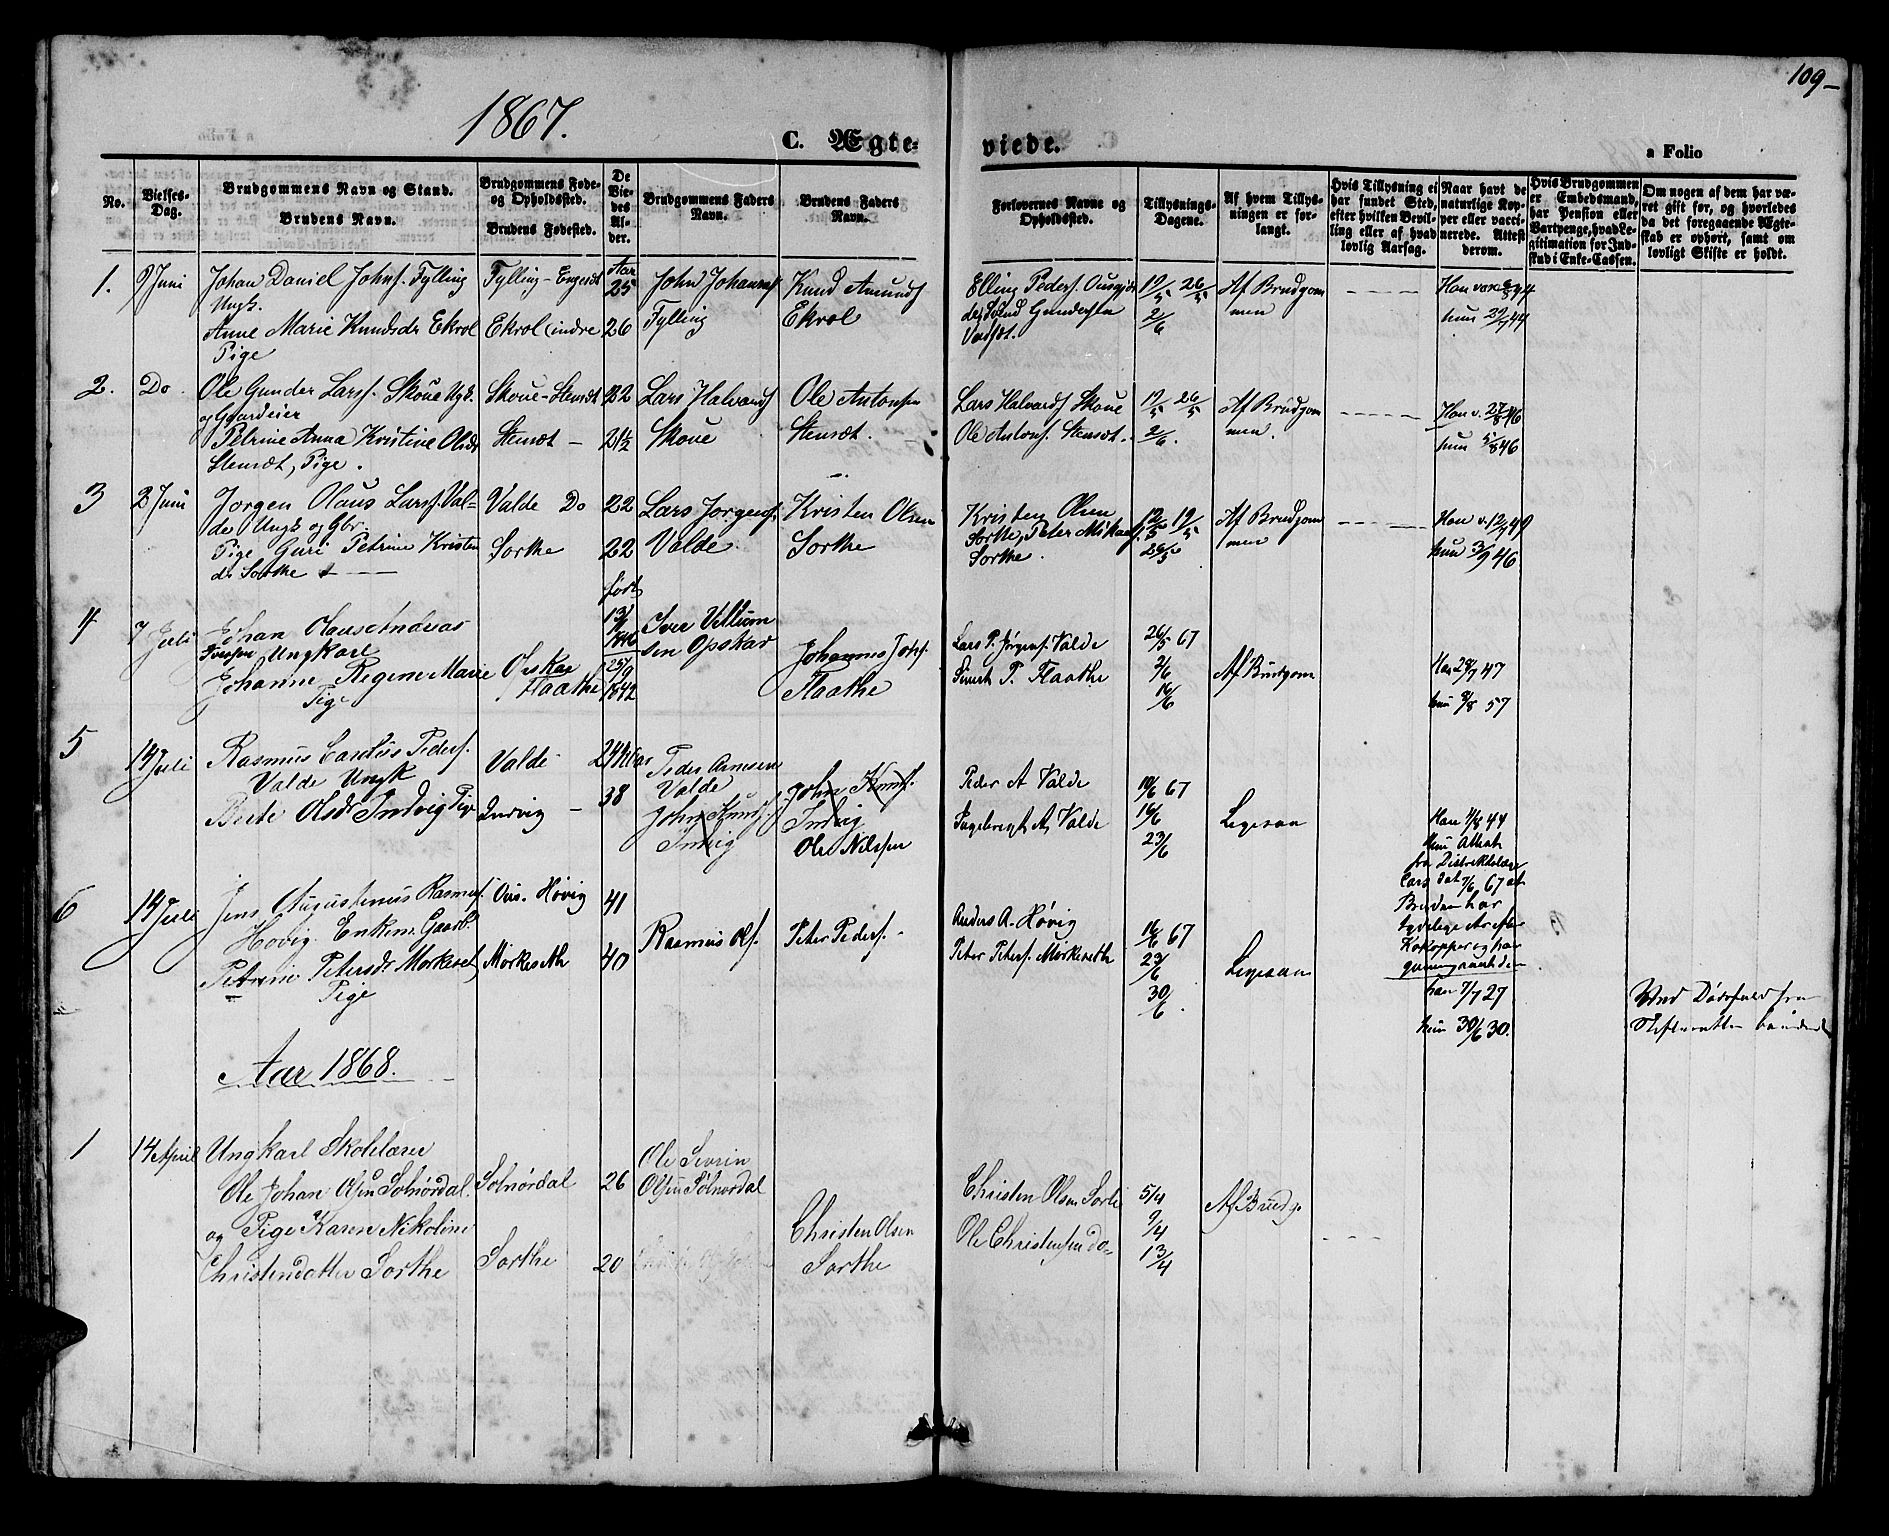 109
1867.
C. Ægte-
viede.
a Folio
No.
Vielses-
Dag.
Brudgommens Navn og Stand.
Brudens Navn.
Brudgommens Føde-
og Opholdssted.
Brudens Fødested.
De
Vie-
des
Al-
der.
Brudgommens Faders
Navn.
Brudens Faders
Navn.
Forlovernes Navne og
Opholdssted.
Tillysnings-
Dagene.
Af hvem Tillys-
ningen er for-
langt.
Hvis Tillysning ei
har fundet Sted,
efter hvilken Bevil-
ling eller af hvad
lovlig Aarsag.
Naar havt de
naturlige Kop-
per eller vacci-
nerede. Attest
derom.
Hvis Brudgommen
er Embedsmand,
har Pension eller
Vartpenge, hvad Le-
gitimation for Ind-
skud i Enke-Cassen.
Om nogen af dem har væ-
ret gift før, og hvorledes
da det foregaaende Ægte-
skab er ophørt, samt om
lovligt Skifte er holdt.
1. 9 Juni Johan Daniel Johns. Fylling
Ungk.
Anne Marie Knudsdr Ekrol
Pige
Fylling - Engesdt
Ekrol (indre
Aar
25
26
John Johanns
Fylling
Knud Amunds
Ekrol
Elling Peders.
19/5 26/5
2/6
Af Brudgom
men
Han
hun 29/7 44
2. Do. Ole Gunder Larss. Skoue Ugk.
og Gaardeier
Petrine Anna Kristine Olsdr
Stensæt, Pige.
Skoue - Stensdt
Stensæt -
22
21½
Lars Halvards
Skoue
Ole Antonsen
Stensæt.
Lars Halvards Skoue
Ole Antons. Stensæt.
19/5 26/5
2/6.
Af Brudgom
men.
Han v. 27/8 46
hun 5/8 46
3 2 Juni Jorgen Olaus Larss. Val-
de Ungk og Gbr.
Pige Guri Petrine Kristen
dr Sorthe
Valde Do
Sorthe
22
22
Lars Jorgens.
Valde.
Kristen Olsen
Sorthe
Kristen Olsen
Sorthe, Peter Mikaels.
Sorthe.
12/5 19/5
26/5
Af Brudgom
men
Han v. 12/7 49
hun 3/9 46
4 7 Juli Johan Olaus Andreas
Iversen Ungkarl
Johanne Regene Marie
Pige
Opskar
Flaathe
født
13/
1846
25/9
1842
Iver Villum
sen Opskar
Johannes Johs.
Flaathe
Lars P. Jørgens. Valde
Sivert P. Flaathe
26/5 67
2/6
16/6
Af Brudgom
Han 29/7 47
hun 9/8 57
5 14 Juli Rasmus Carolus Peders.
Valde Ungk
Berte Olsdr Indvig Pige
Valde
Indvig -
24
38
Peder Arnesen
Valde
John Knuds.
Indvig
John Knuds.
Indvig
Ole Nilssen
Peder A Valde
Ingebregt A. Valde
10/6 67
16/6
23/6
Ligesaa
Han 7/8 44
Hun Attest
fra Distriktslæge
Cars dat 7/6 67 at
Bruden har
tydelige Ar efter
Kokopper og har
gjennemgaaet dem
6 14 Juli Jens Augustinus Rasmus.
Hovig. Enkem. Gaardb.
Petrine Petersdr Morkeset
Pige
Ous. Høvig
Morkeseth
41
40
Rasmus Ols.
Peter Peders. -
Anders A. Høvig
Peter Peters. Mørkeseth
16/6 67
23/6
30/6.
Ligesaa
han 7/7 27
hun 30/6 30.
Ved Dødsfald fra
Skifteretten
Aar 1868.
1 14 April Ungkarl Skolelærer
Ole Johan Olsen Solnørdal.
og Pige Karen Nikoline
Christendatter Sorthe
Solnørdal
Sorthe
26
20
Ole Sevrin
Olsen Sølnordal
Christen Olsen
Sorthe
Christen Olsen Sorte
Ole Christensen do-
5/4
9/4
13/4
Af Brudg.